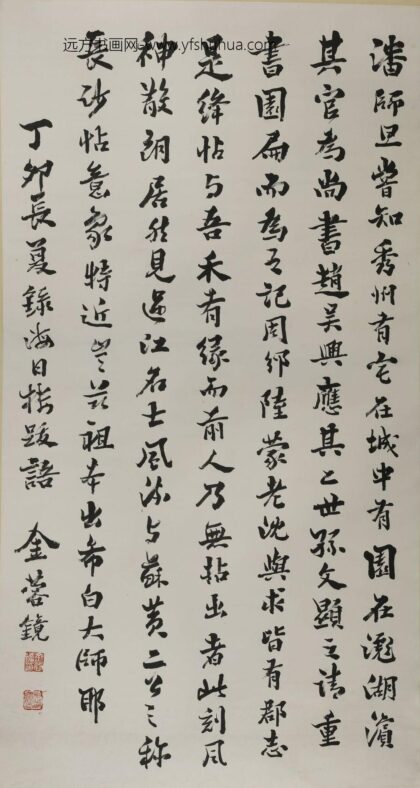 远方书画网-www.yfshuhua.com
潘師旦嘗知秀州有宅在城中有園在滮湖濱
其官為尚書趙吳興應其七世孫文顯之請重
書園扁而為之記周邠陸蒙老沈與求皆有郡志
是絳帖与吾禾有緣而前人乃無拈出者此刻風
神散朗居然見過江名士風流与蘇黃二公之称
長沙帖意象特近豈茲祖本出希白大師耶
丁卯長夏錄海日樓跋語 金蓉鏡